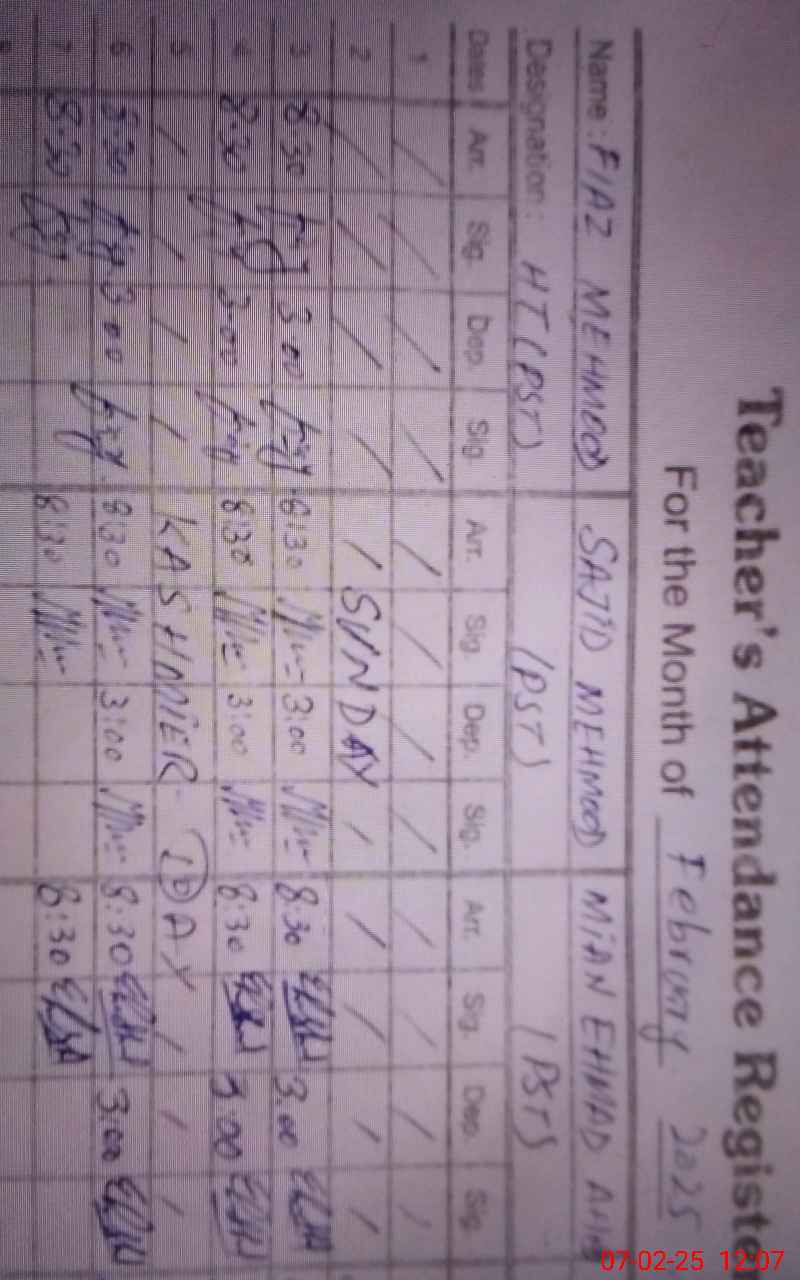 Teacher's Attendance Registe
For the Month of February 2025
Name: FIAZ MEHMOOD SAJID MEHMOOD MIAN EHMAD
Designation: HT (PST) (PST) (PST)
Dates Arr. Sig. Dep. Sig. Arr. Sig. Dep. Sig. Arr. Sig. Dep. Sig.
1 / / / / / / / / / / / /
2 / / / / / SUNDAY / / / / /
3 8:30 3.00 8:30 3:00 8:30 3.00
4 8.30 3-00 8:30 3:00 8:30 3.00
5 / / / / KASHMIER DAY / / /
6 8.30 3.00 8:30 3:00 8:30 3.00
7 8.30 8:30 8:30
07-02-25 12:07